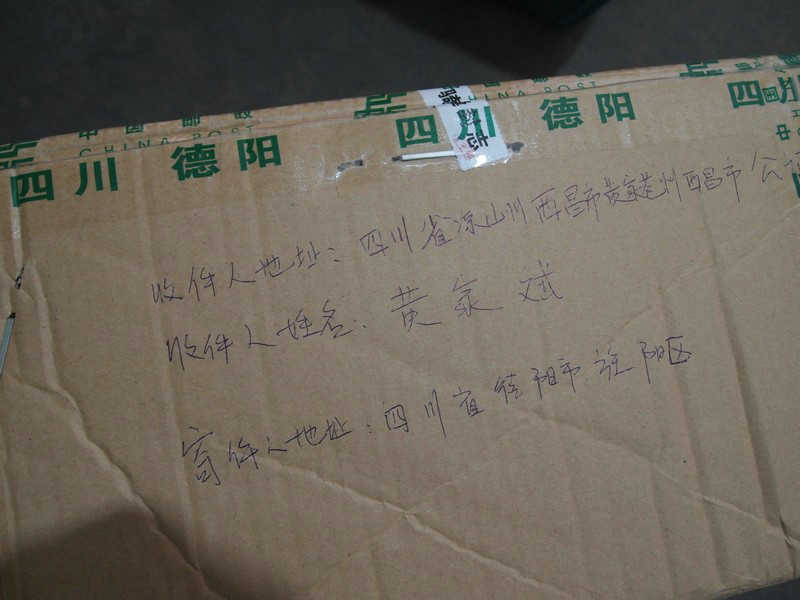 中国邮政
CHINA POST
四川 德阳
四川 德阳
四川
收件人地址：四川省凉山州西昌市黄家巷州西昌市公
收件人姓名：黄泉斌
寄件人地址：四川省德阳市旌阳区